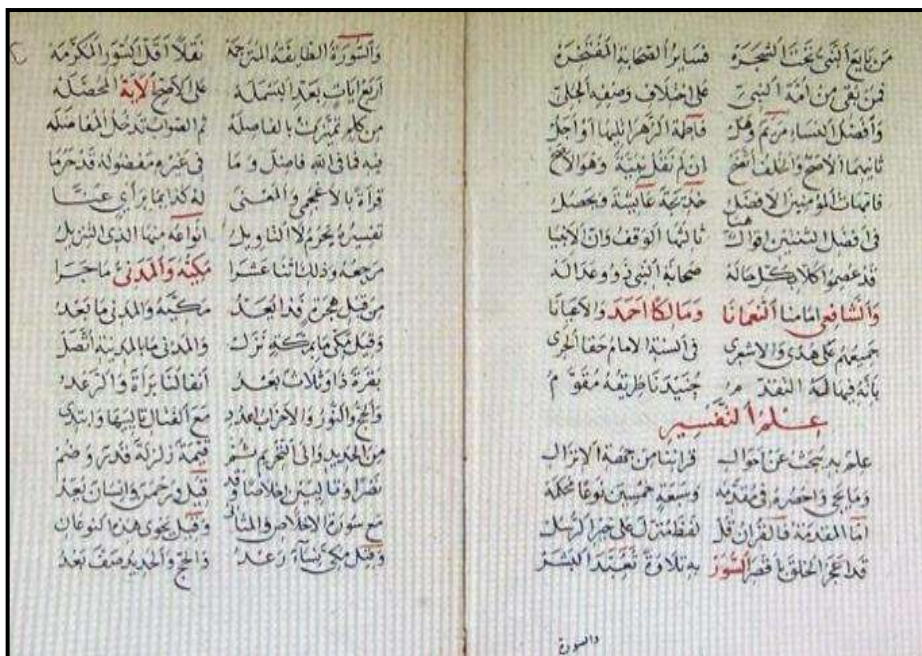 من بايع النبي تحت الشجرة فساير الصحابة المفتخرة
فمن بقى من أمة النبي على اختلاف وصفه الجلي
وأفضل النساء مريم وهل فاطمة الزهرا تليها أو أجل
ثانيهما الأصح والخلف اتضح إن لم نقل نبية وهو الأصح
فأمهات المؤمنين الأفضل خديجة عايشة ويحصل
في أفضل الثنتين أقوال هنا ثالثها الوقف وأن الأنبيا
قد عصموا كلا بكل حاله صحابة النبي ذوو عداله
والشافعي إمامنا النعمانا ومالكا أحمد والأعيانا
جميعهم على هدى والأشعري في السنة الإمام حقا الحري
بأنه فيها له التقدم جنيدنا طريقه مقوم
علم التفسير
علم به يبحث عن أحوال قرآننا من جهة الإنزال
وما يجي واحصره في مقدمه وسبعة خمسين نوعا محكمه
أما المقدمة فالقران قل لفظ منزل على خير الرسل
قد أعجز الخلق بأقصر السور به تلاوة تعبد البشر
والسورة
والسورة الطايفة المترجمة نقلا أقل السور المكرمة
أربع آيات بعد البسملة على الأصح الآية المحصلة
من كلم تميزت بالفاصله ثم الصواب تدخل المفاضله
فيه فما في الله فاضل وما في غيره مفضوله قد حرما
قرأة بالاعجمي والمعنى له كذا بما برأي عنا
تفسيره يحرم لا التأويل أنواعه منها الذي التنزيل
مرجعه وذلك اثنا عشرا مكيه والمدني ما جرا
من قبل هجرة فذا البعد مكية والمدني ما بعد
وقيل مكي ما بمكة نزل والمدني ما بالمدينة اتصل
بقرة ذا وثلاث بعد أنفالنا براءة والرعد
والحج والنور والأحزاب اعدد مع القتال تاليها وابتدى
من الحديد وإلى التحريم ثم قيمة زلزلة قدر وضم
نصرا وتاليتين إخلاصا وقد قيل ورحمن وإنسان بعد
مع سورة الإخلاص والمثاني وقيل يحوى هذه النوعان
وقيل مكي نساء رعد والحج والحديد صف بعد